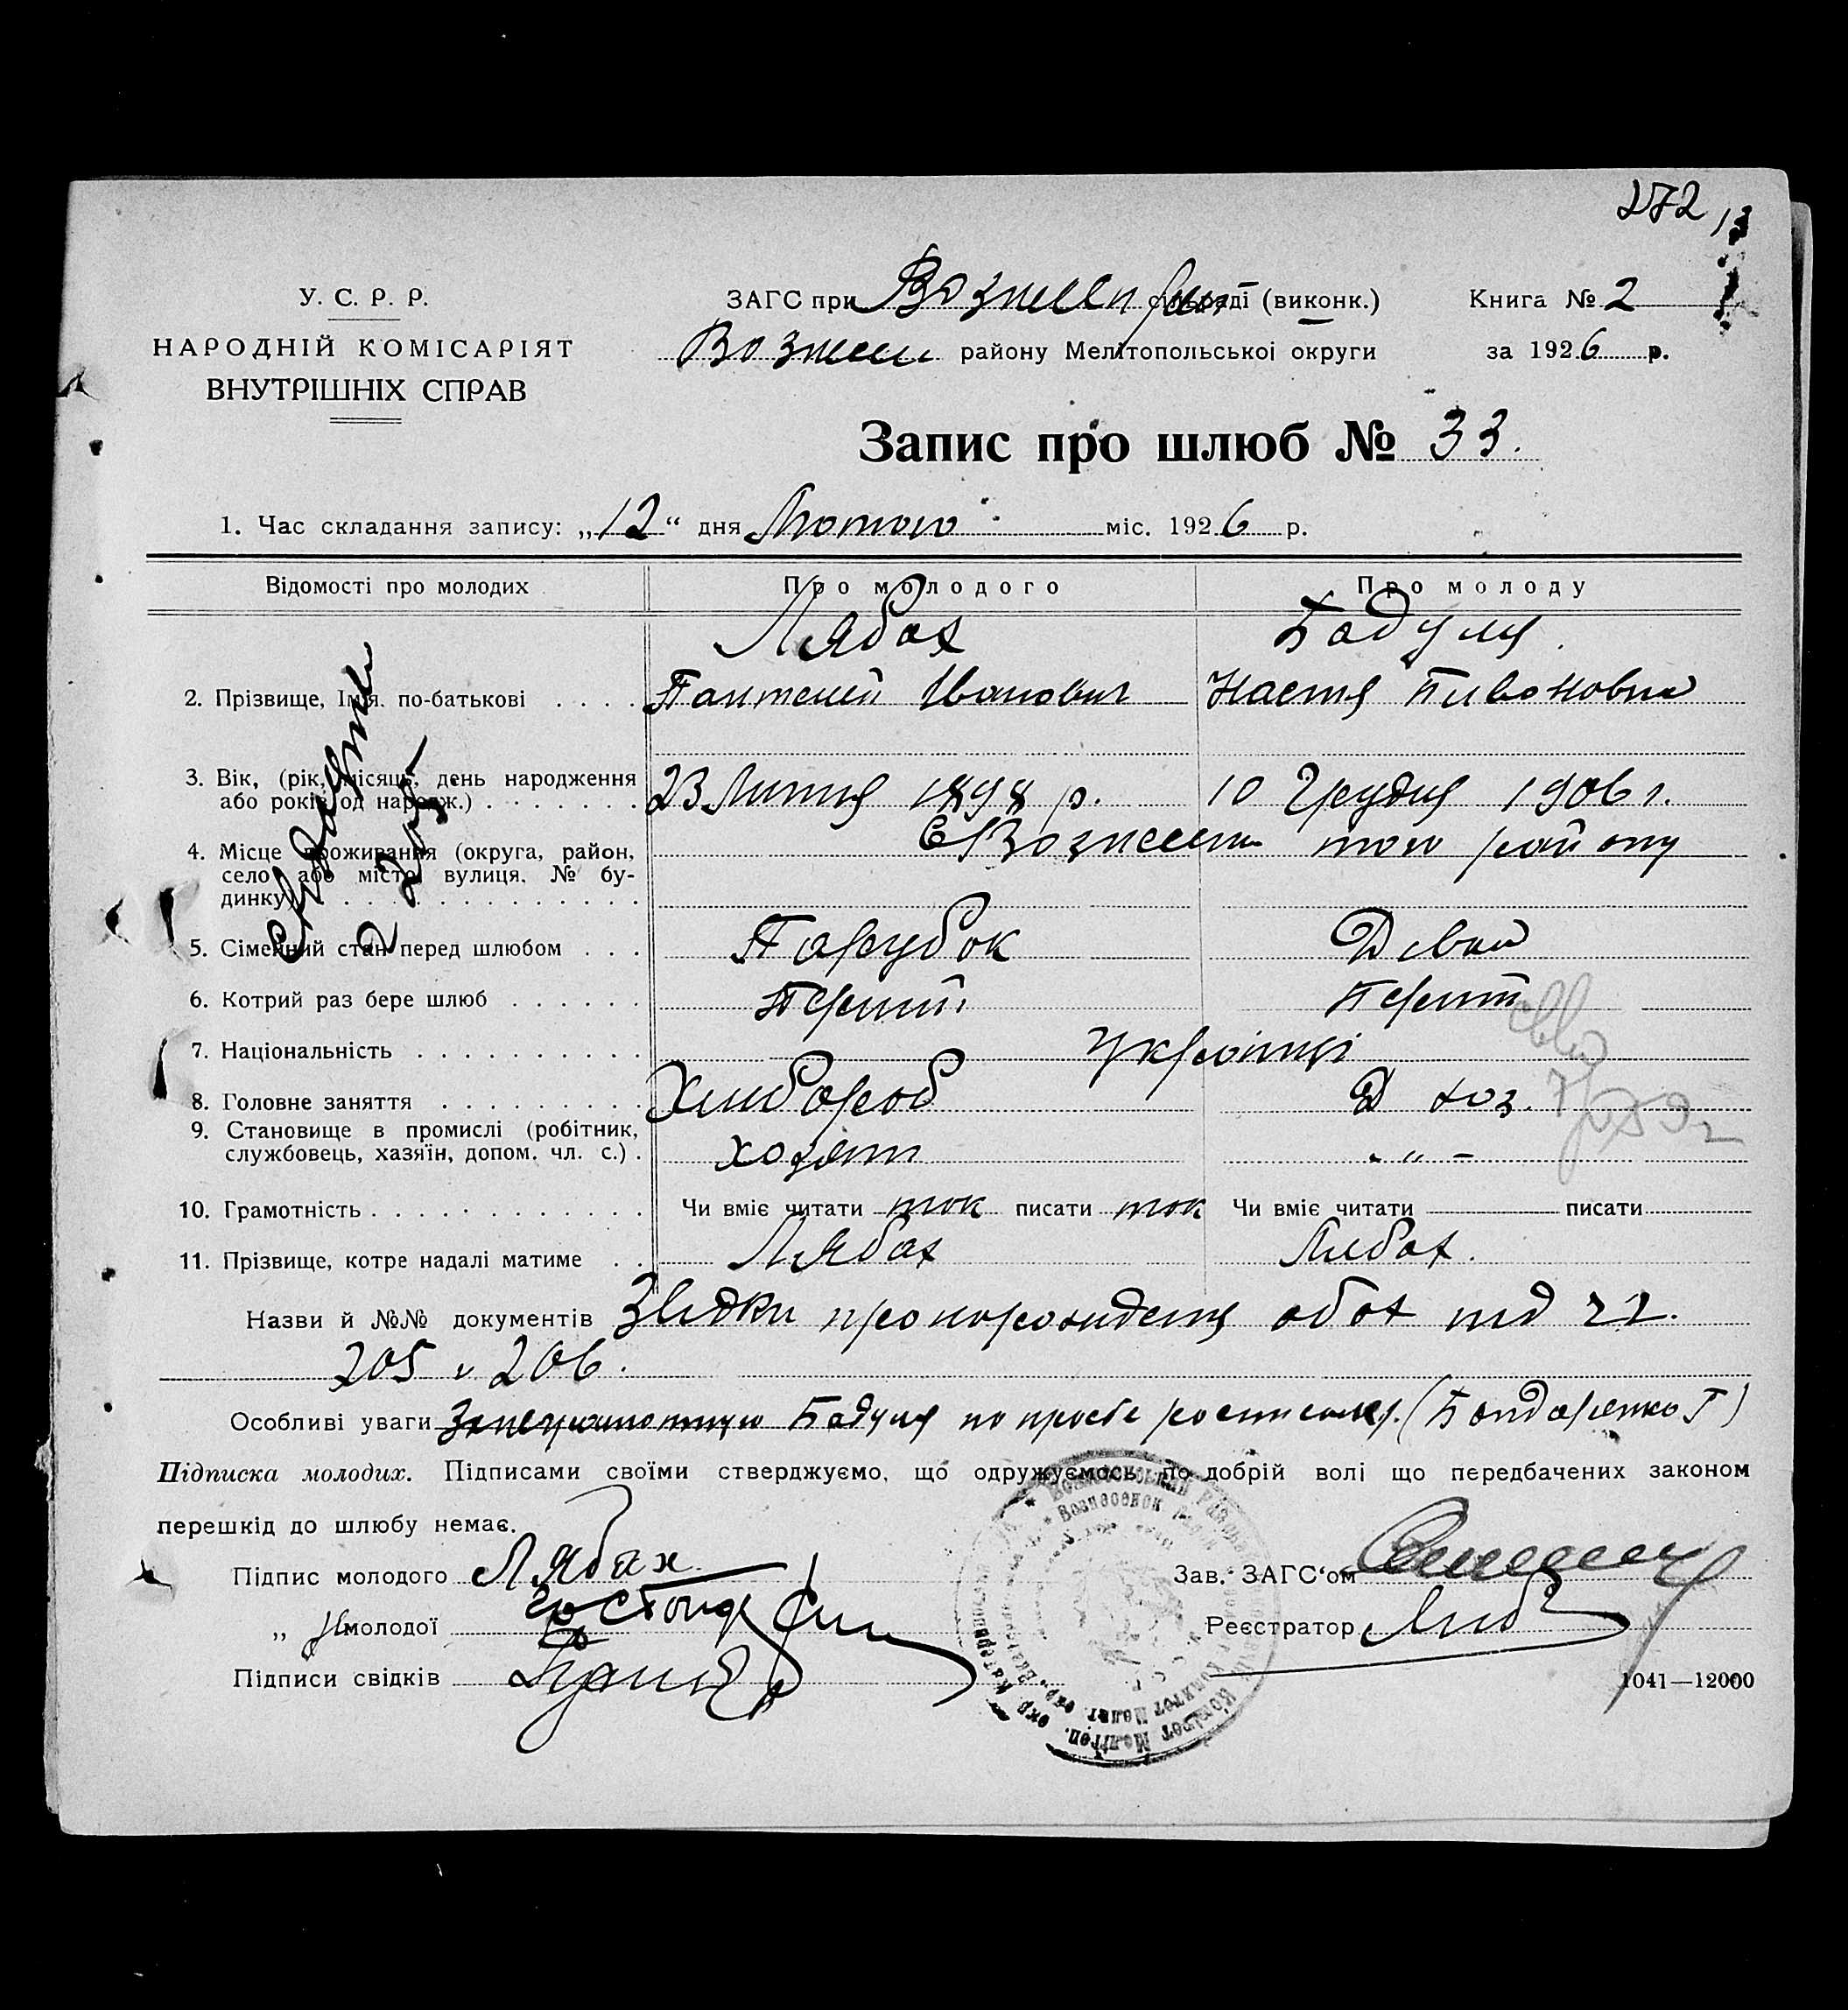 272
У. С. Р. Р.
НАРОДНІЙ КОМІСАРІЯТ
ВНУТРІШНІХ СПРАВ
ЗАГС при сільраді (виконк.)
Вознесен району Мелітопольської округи
Книга № 2
за 1926 р.
Запис про шлюб № 33.
1. Час складання запису: „12“ дня Лютого міс. 1926 р.
Відомості про молодих Про молодого Про молоду
Лябах Бадуля
2. Прізвище, Ім'я. по-батькові . . . . Пантелей Иванович Настя Пивоновна
3. Вік, (рік, місяць, день народження 23 Липня 1898 р. 10 Грудня 1906 г.
або років од народж.) . . . . . . .
4. Місце проживання (округа, район, С Вознесен того району
село або місто, вулиця, № бу-
динку) . . . . . . . . . . . . .
5. Сімейний стан перед шлюбом . . . Парубок Дівка
6. Котрий раз бере шлюб . . . . . . Перший Перший
7. Національність . . . . . . . . . . Українці
8. Головне заняття . . . . . . . . . Хлибороб Д хоз.
9. Становище в промислі (робітник,
службовець, хазяїн, допом. чл. с.) . хозяин - „ -
10. Грамотність . . . . . . . . . . . . Чи вміє читати так писати так Чи вміє читати писати
11. Прізвище, котре надалі матиме . . Лябах Лябах.
Назви й №№ документів Звидки про народження обох під 22.
205 и 206.
Особливі уваги Бадуля по просьбе росписался. (Бондаренко Г)
Підписка молодих. Підписами своїми стверджуємо, що одружуємось по добрій волі що передбачених законом
перешкід до шлюбу немає.
Підпис молодого Лябах Зав. ЗАГС‘ом
„ молодої Реєстратор
Підписи свідків
1041—12000